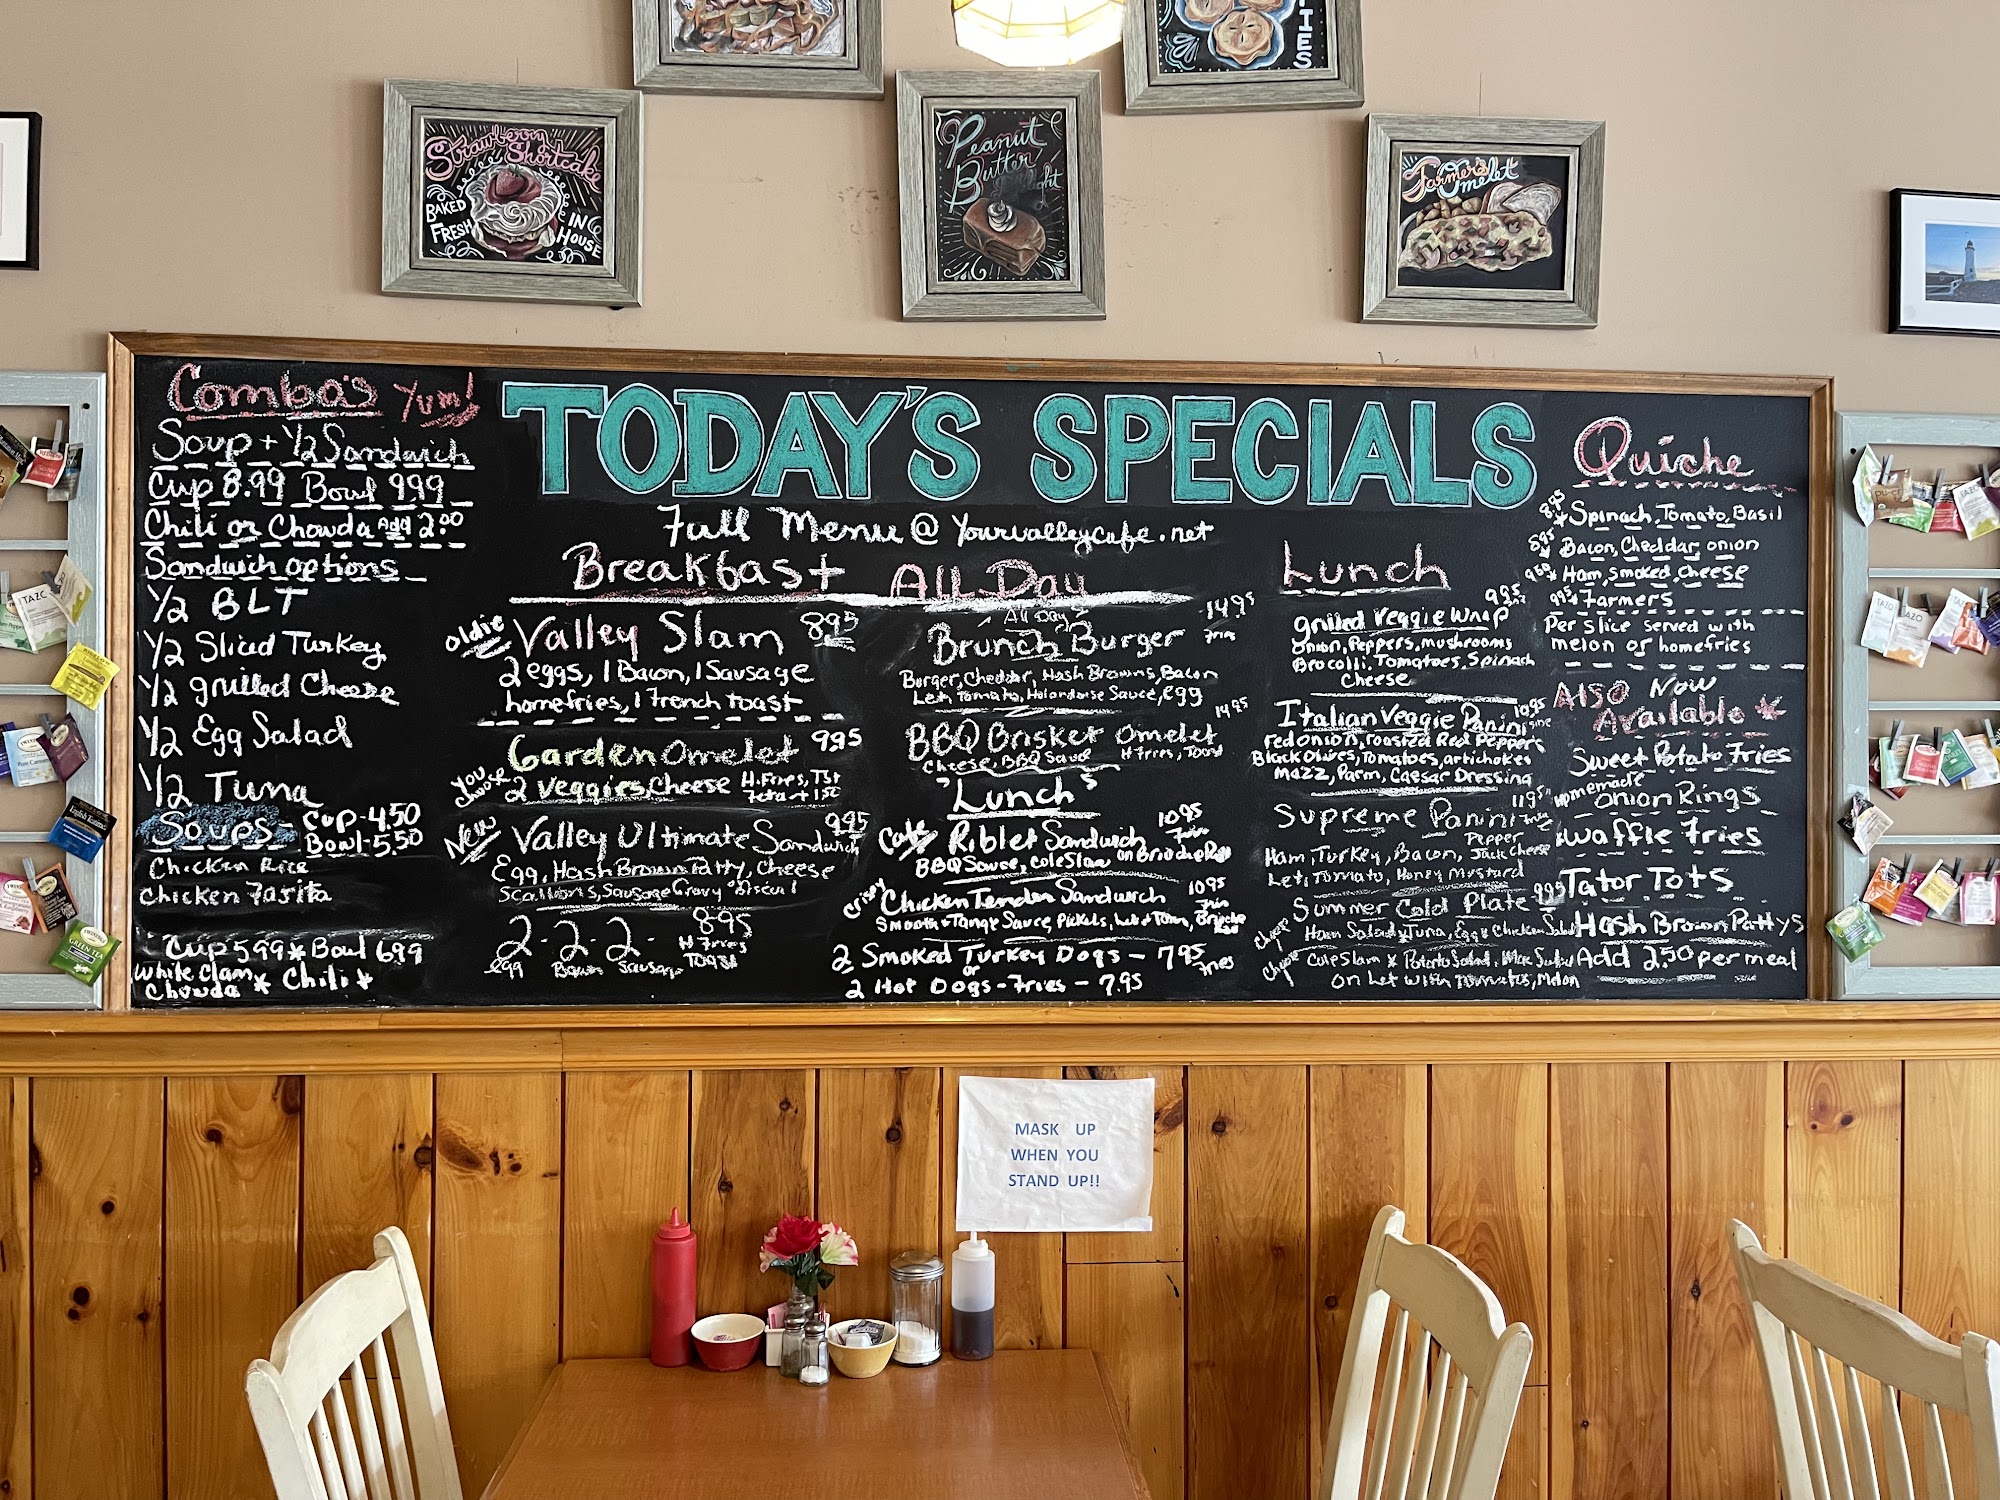 PIES
Strawberry
Shortcake
BAKED
FRESH
IN
HOUSE
Peanut
Butter
Farmer's
Omelet
Combo's Yum!
Soup + 1/2 Sandwich
Cup 8.99 Bowl 9.99
Chili or Chowda Add 2.00
Sandwich options
1/2 BLT
1/2 Sliced Turkey
1/2 grilled Cheese
1/2 Egg Salad
1/2 Tuna
Soups - Cup - 4.50
Bowl - 5.50
Chicken Rice
Chicken Fasita
Cup 5.99 * Bowl 6.99
White Clam
Chowda * Chili *
TODAY'S SPECIALS
Full Menu @ Yourvalleycafe.net
Breakfast All Day
oldie Valley Slam 8.95
2 eggs, 1 Bacon, 1 Sausage
homefries, 1 French toast
Garden Omelet 9.95
You Choose
2 Veggies, Cheese H.Fries, Tst
New Valley Ultimate Sandwich 9.95
Egg, Hash Brown Patty, Cheese
Scallions, Sausage Gravy Biscuit
2 - 2 - 2 - 8.95
egg Bacon Sausage H Fries
Toast
All Day
Brunch Burger 14.95
Fries
Burger, Cheddar, Hash Browns, Bacon
Let, Tomato, Holandaise Sauce, egg
BBQ Brisket Omelet 14.95
Cheese, BBQ Sauce H Fries, Toast
"Lunch"
Cafe Riblet Sandwich 10.95
Fries
BBQ Sauce, Cole Slaw on Brioche Roll
Crispy Chicken Tender Sandwich 10.95
Fries
Smooth + Tangy Sauce, Pickles, Let + Tom, Brioche
2 Smoked Turkey Dogs - 7.95
or Fries
2 Hot Dogs - Fries - 7.95
Lunch
grilled Veggie Wrap 9.95
Onion, Peppers, mushrooms
Brocolli, Tomatoes, Spinach
Cheese
Italian Veggie Panini 10.95
red onion, roasted Red Peppers
Black Olives, Tomatoes, artichokes
Mozz, Parm, Caesar Dressing
Supreme Panini 11.95
Ham, Turkey, Bacon, Pepper Jack Cheese
Let, Tomato, Honey Mustard
Summer Cold Plate 9.95
Choose Ham Salad, Tuna, Egg, Chicken Salad
Choose Cole Slaw * Potato Salad, Mac Salad
on Let with Tomatoes, Melon
Quiche
8.95 * Spinach, Tomato, Basil
8.95 * Bacon, Cheddar, onion
9.50 * Ham, Smoked, Cheese
9.95 * Farmers
Per Slice served with
melon or homefries
Also Now
Available *
Sweet Potato Fries
Homemade Onion Rings
Waffle Fries
Tator Tots
Hash Brown Pattys
Add 2.50 per meal
TAZO
TAZO
TAZO
TAZO
TWININGS
GREEN TEA
MASK UP
WHEN YOU
STAND UP!!